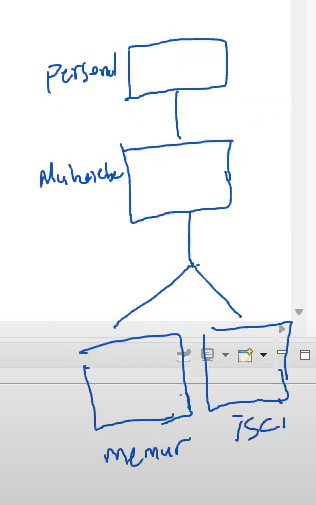 Personel
Muhasebe
Memur
İSCİ